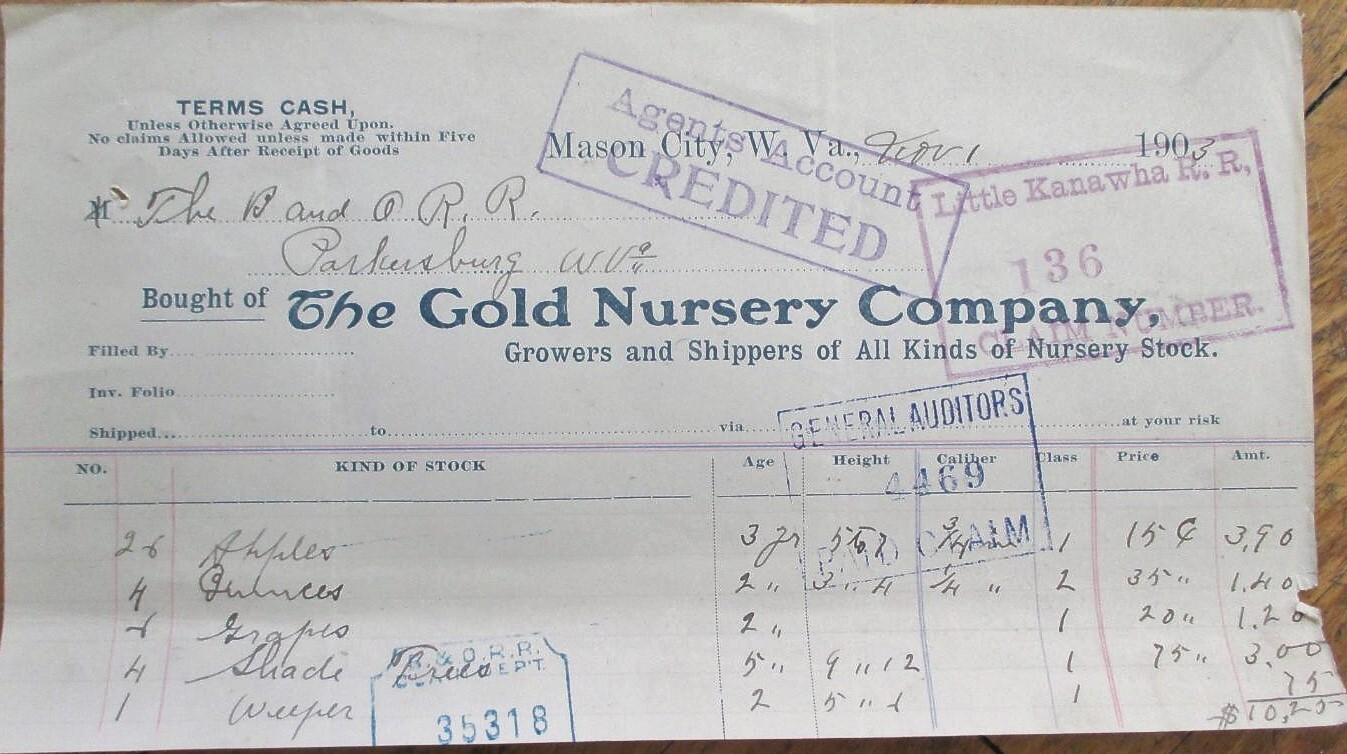 TERMS CASH,
Unless Otherwise Agreed Upon.
No claims Allowed unless made within Five
Days After Receipt of Goods
Agents Account
CREDITED
Mason City, W. Va., Nov 1 1903
Little Kanawha R. R,
136
CLAIM NUMBER.
M The B and O R. R.
Parkersburg W Va
Bought of The Gold Nursery Company,
Growers and Shippers of All Kinds of Nursery Stock.
Filled By
Inv. Folio
Shipped to via at your risk
GENERAL AUDITORS
4469
PAID CLAIM
NO. KIND OF STOCK Age Height Caliber Class Price Amt.
26 Apples 3 yr 5 to 7 3/4 1 15 ¢ 3.90
4 Quinces 2 " 3 " 4 1/4 " 2 35 " 1.40
6 Grapes 2 " 1 20 " 1.20
4 Shade Trees 5 " 9 " 12 1 75 " 3.00
1 Weeper 2 5 " 6 1 75
$10,25
B. & O. R. R.
DEP'T.
35318